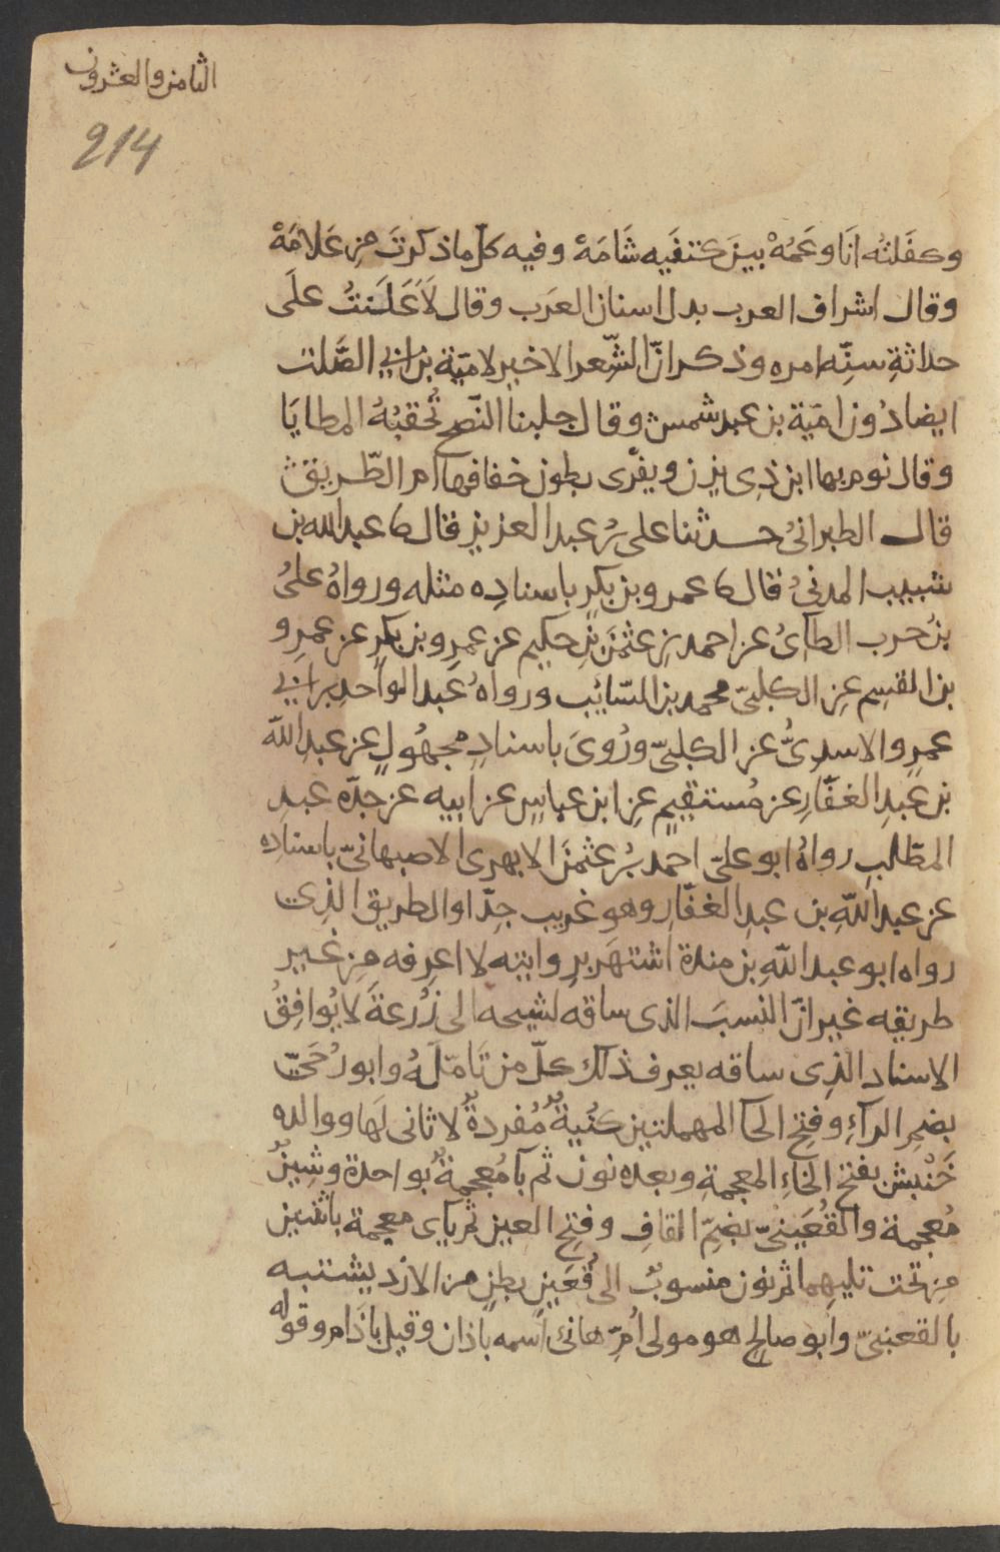 الثامن والعشرون
214
وكفَلتُه انَا وعَمُهْ بينَ كتفَيه شَامَهْ وفيه كلّ ما ذكرتَ مِن عَلامَهْ
وقال اشراف العرب بدل اسنان العرَب وقال لَاَعْلَنتُ علَى
حداثةِ سنِّه امره وذكر انّ الشّعر الاخير لاميّة بن ابي الصَّلت
ايضا دُون اميّة بن عبد شمس وقال جلبنا النّصح تُحقبُهُ المطايَا
وقال نوم بها ابن ذى يزن ويفرى بطون خفافها ام الطّريق
قال الطبرانىُ حدثنا على بْرُ عبد العزيز قال نا عبد الله بن
شبيب المدنىُ قال نا عمرو بن بكرٍ باسنادِه مثله ورواهُ علىُ
بنُ حرب الطآىُ عن احمد بن عثمنَ بنِ حكيم عن عمرٍو بن بكرٍ عن عمرِو
بن القسِم عنِ الكلبىّ محمد بن السّائِب ورواهُ عبد الواحدِ بن ابي
عمرٍو الاسدِىُّ عن الكلبىّ ورُوىَ باسنادٍ مجهُولٍ عن عبدِ اللّه
بن عَبدِ الغفَّارِ عن مُستقيمٍ عنِ ابن عباسٍ عن ابيه عن جدّه عبدِ
المطّلبِ رواهُ ابو علىّ احمد بْرُ عثمنَ الابهرى الاصبهانىّ باسنادِه
عن عبد اللّهِ بن عبدِ الغفّارِ وهو غريب جدّا والطريق الذِى
رواه ابو عبد اللّهِ بن مندة اشتهَر بروايته لا اعرِفه مِن غير
طريقه غير انّ النسبَ الذى ساقه لشيخه الى زُرعةَ لا يُوافِقُ
الاسناد الذِى ساقه يعرف ذلك كلّ من تَامّلَهُ وابو رُحَىّ
بضمِ الرآءِ وفتِح الحآ المهملتين كنُيةٌ مُفردةٌ لا ثانى لَها ووالده
خَنْبش بفتح الخآءِ المعجمةِ وبعده نون ثم بآ مُعجمةٌ بواحدة وشِينٌ
مُعجمة والقُعَينىّ بضمّ القافِ وفتِح العين ثم ياى معجمة باثنين
مِن تحت تليهِما ثم نون منسوبٌ الى قُعَينٍ بطنٍ من الازد يشتبه
بالقعنبىّ وابو صالح هو مولى اُمّ هانئ اسمه باذان وقيل باذَام وقوله